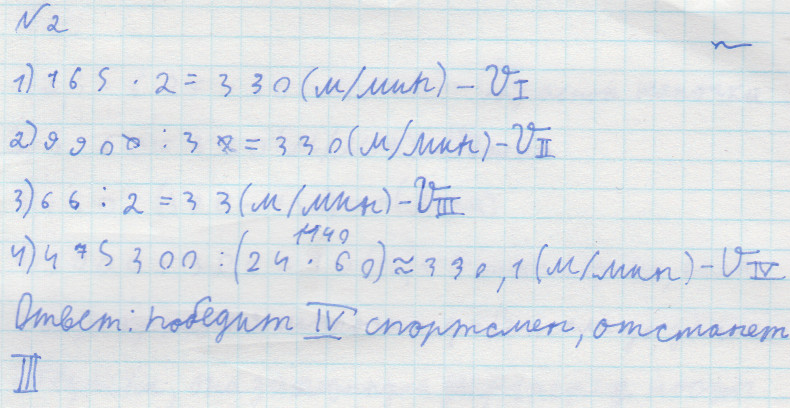 №2
1) 165 · 2 = 330 (м/мин) – V I
2) 9900 : 30 = 330 (м/мин) – V II
3) 66 : 2 = 33 (м/мин) – V III
1140
4) 475300 : (24 · 60) ≈ 330,1 (м/мин) – V IV
Ответ: победит IV спортсмен, отстанет
III